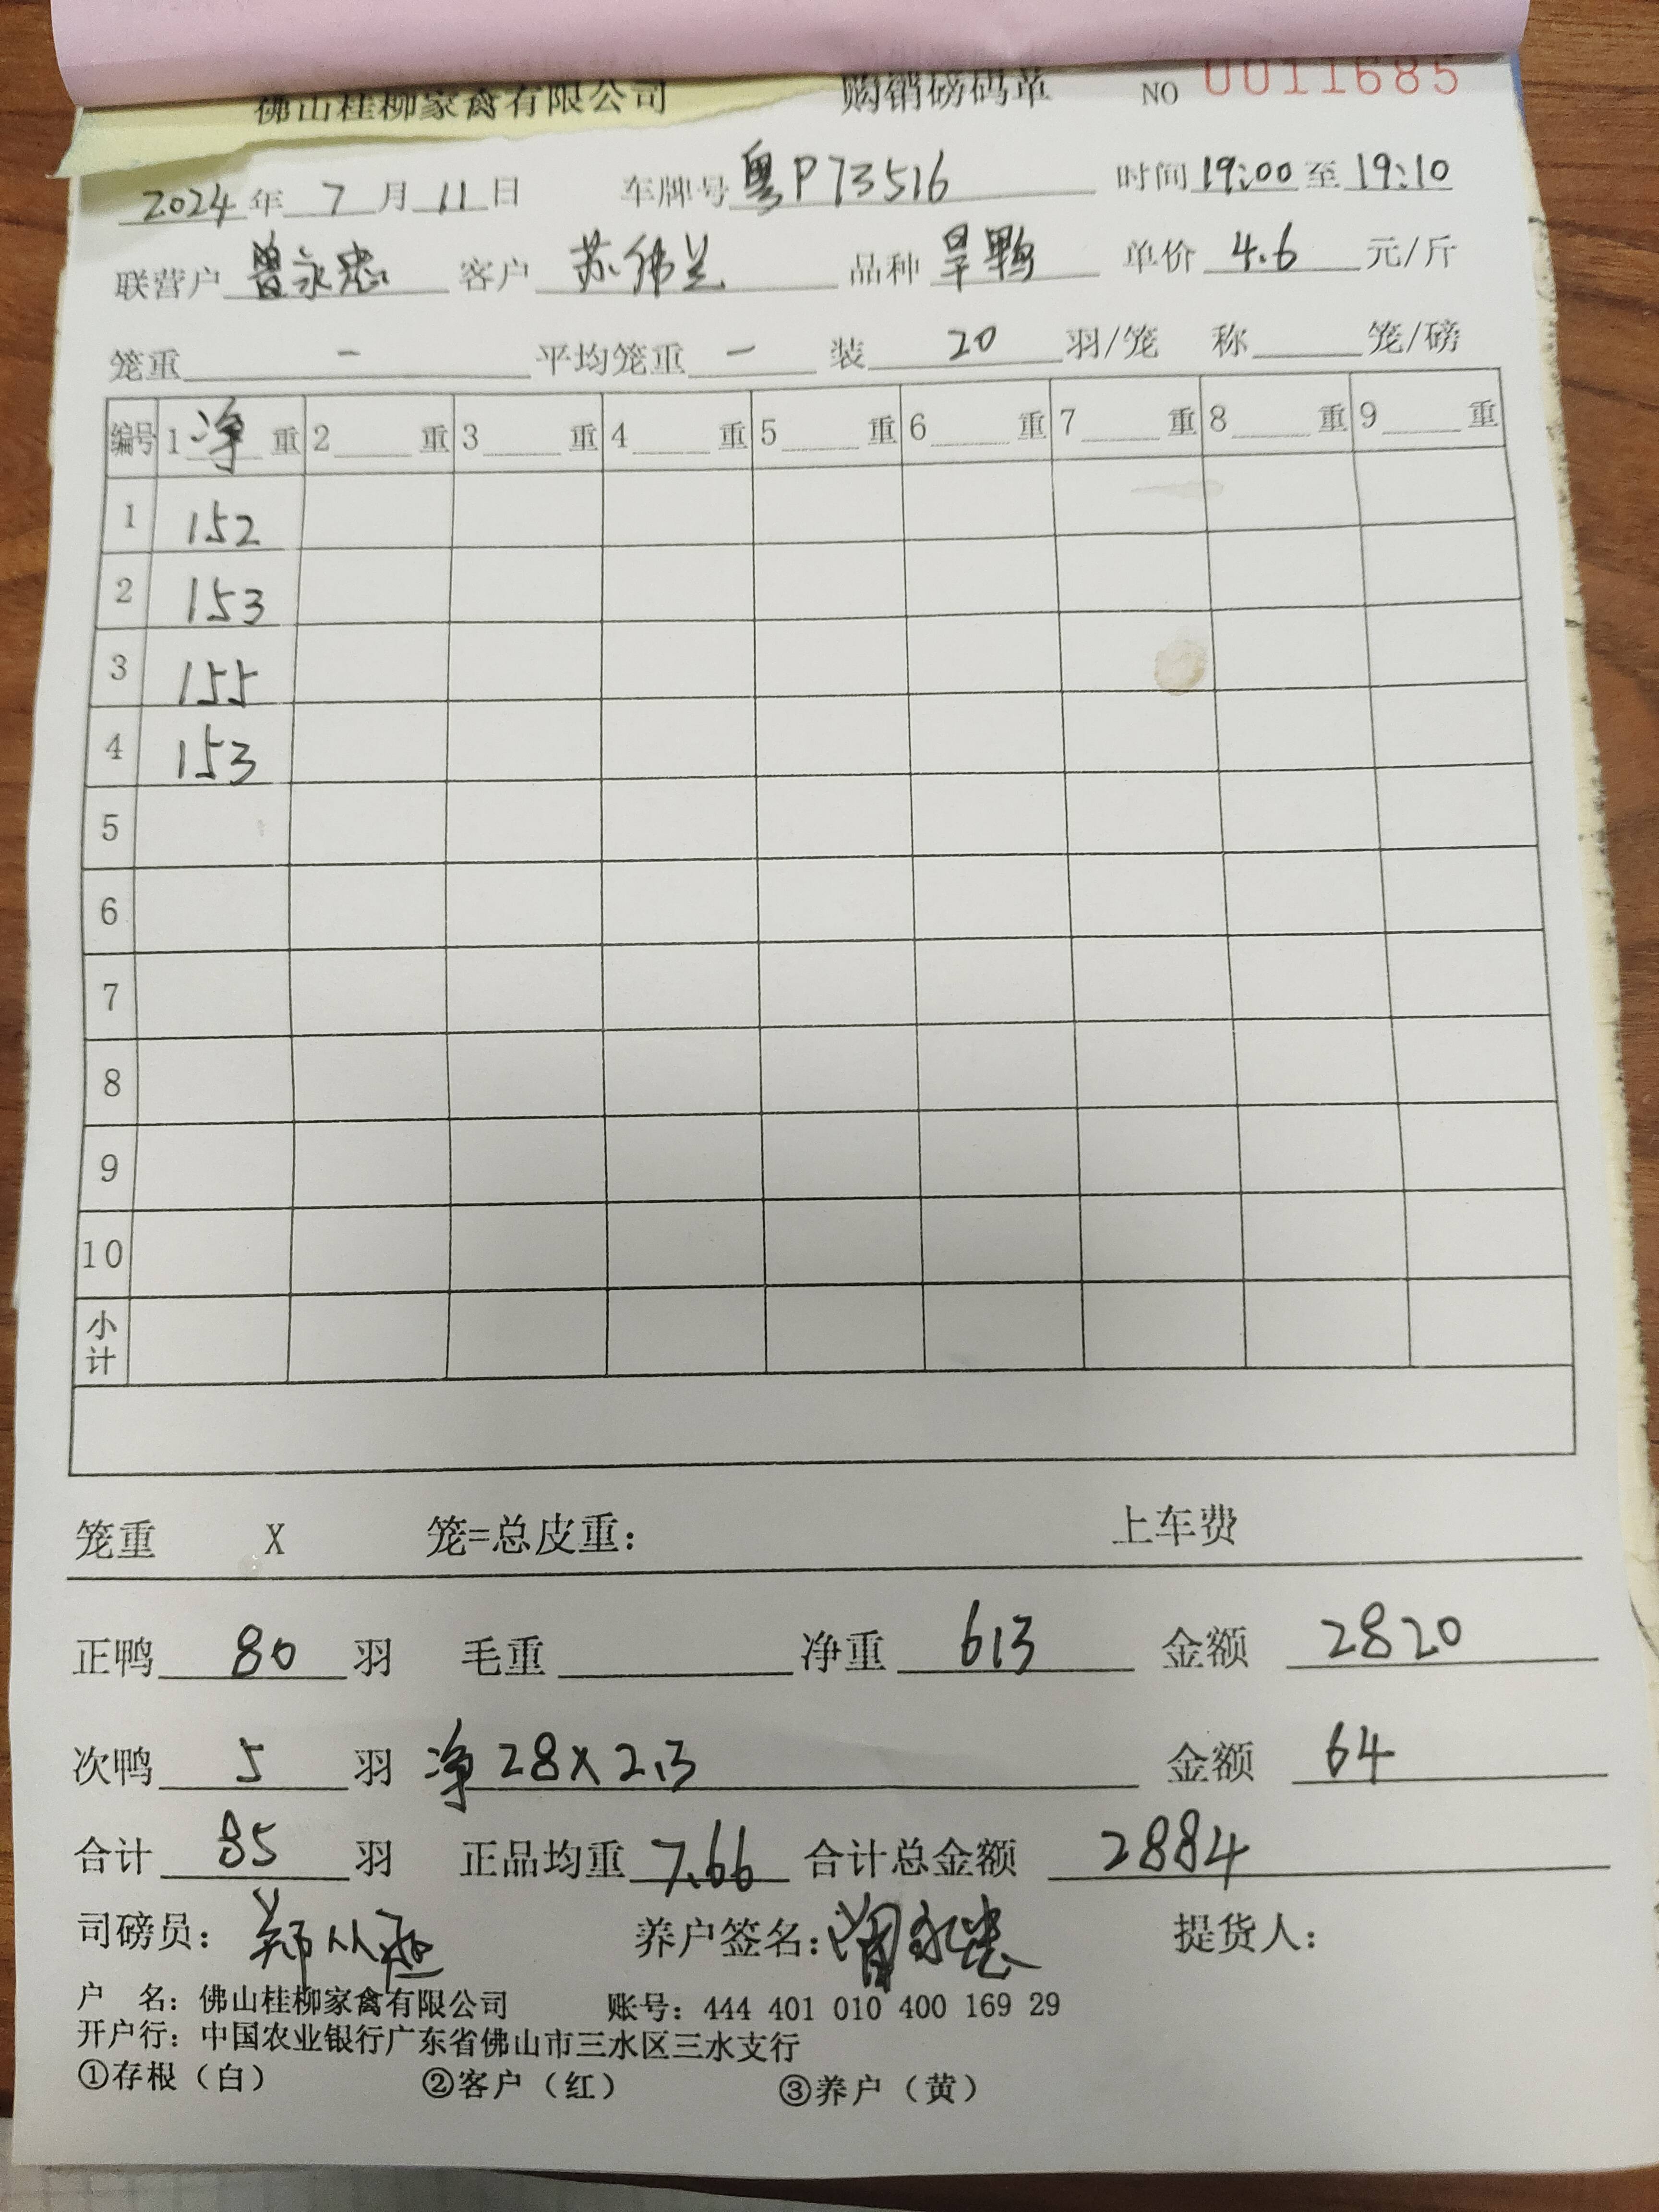 佛山桂柳家禽有限公司 购销磅码单 NO 0011685
2024年 7 月 11 日 车牌号 粤P73516 时间 19:00 至 19:10
联营户 曾永忠 客户 苏伟兰 品种 旱鸭 单价 4.6 元/斤
笼重 - 平均笼重 - 装 20 羽/笼 称 笼/磅
编号 1 净 重 2 重 3 重 4 重 5 重 6 重 7 重 8 重 9 重
1 152
2 153
3 155
4 153
5
6
7
8
9
10
小计
笼重 X 笼=总皮重: 上车费
正鸭 80 羽 毛重 净重 613 金额 2820
次鸭 5 羽 净 28×2.3 金额 64
合计 85 羽 正品均重 7.66 合计总金额 2884
司磅员: 郑 养户签名: 曾永忠 提货人:
户 名: 佛山桂柳家禽有限公司 账号: 444 401 010 400 169 29
开户行: 中国农业银行广东省佛山市三水区三水支行
①存根（白） ②客户（红） ③养户（黄）